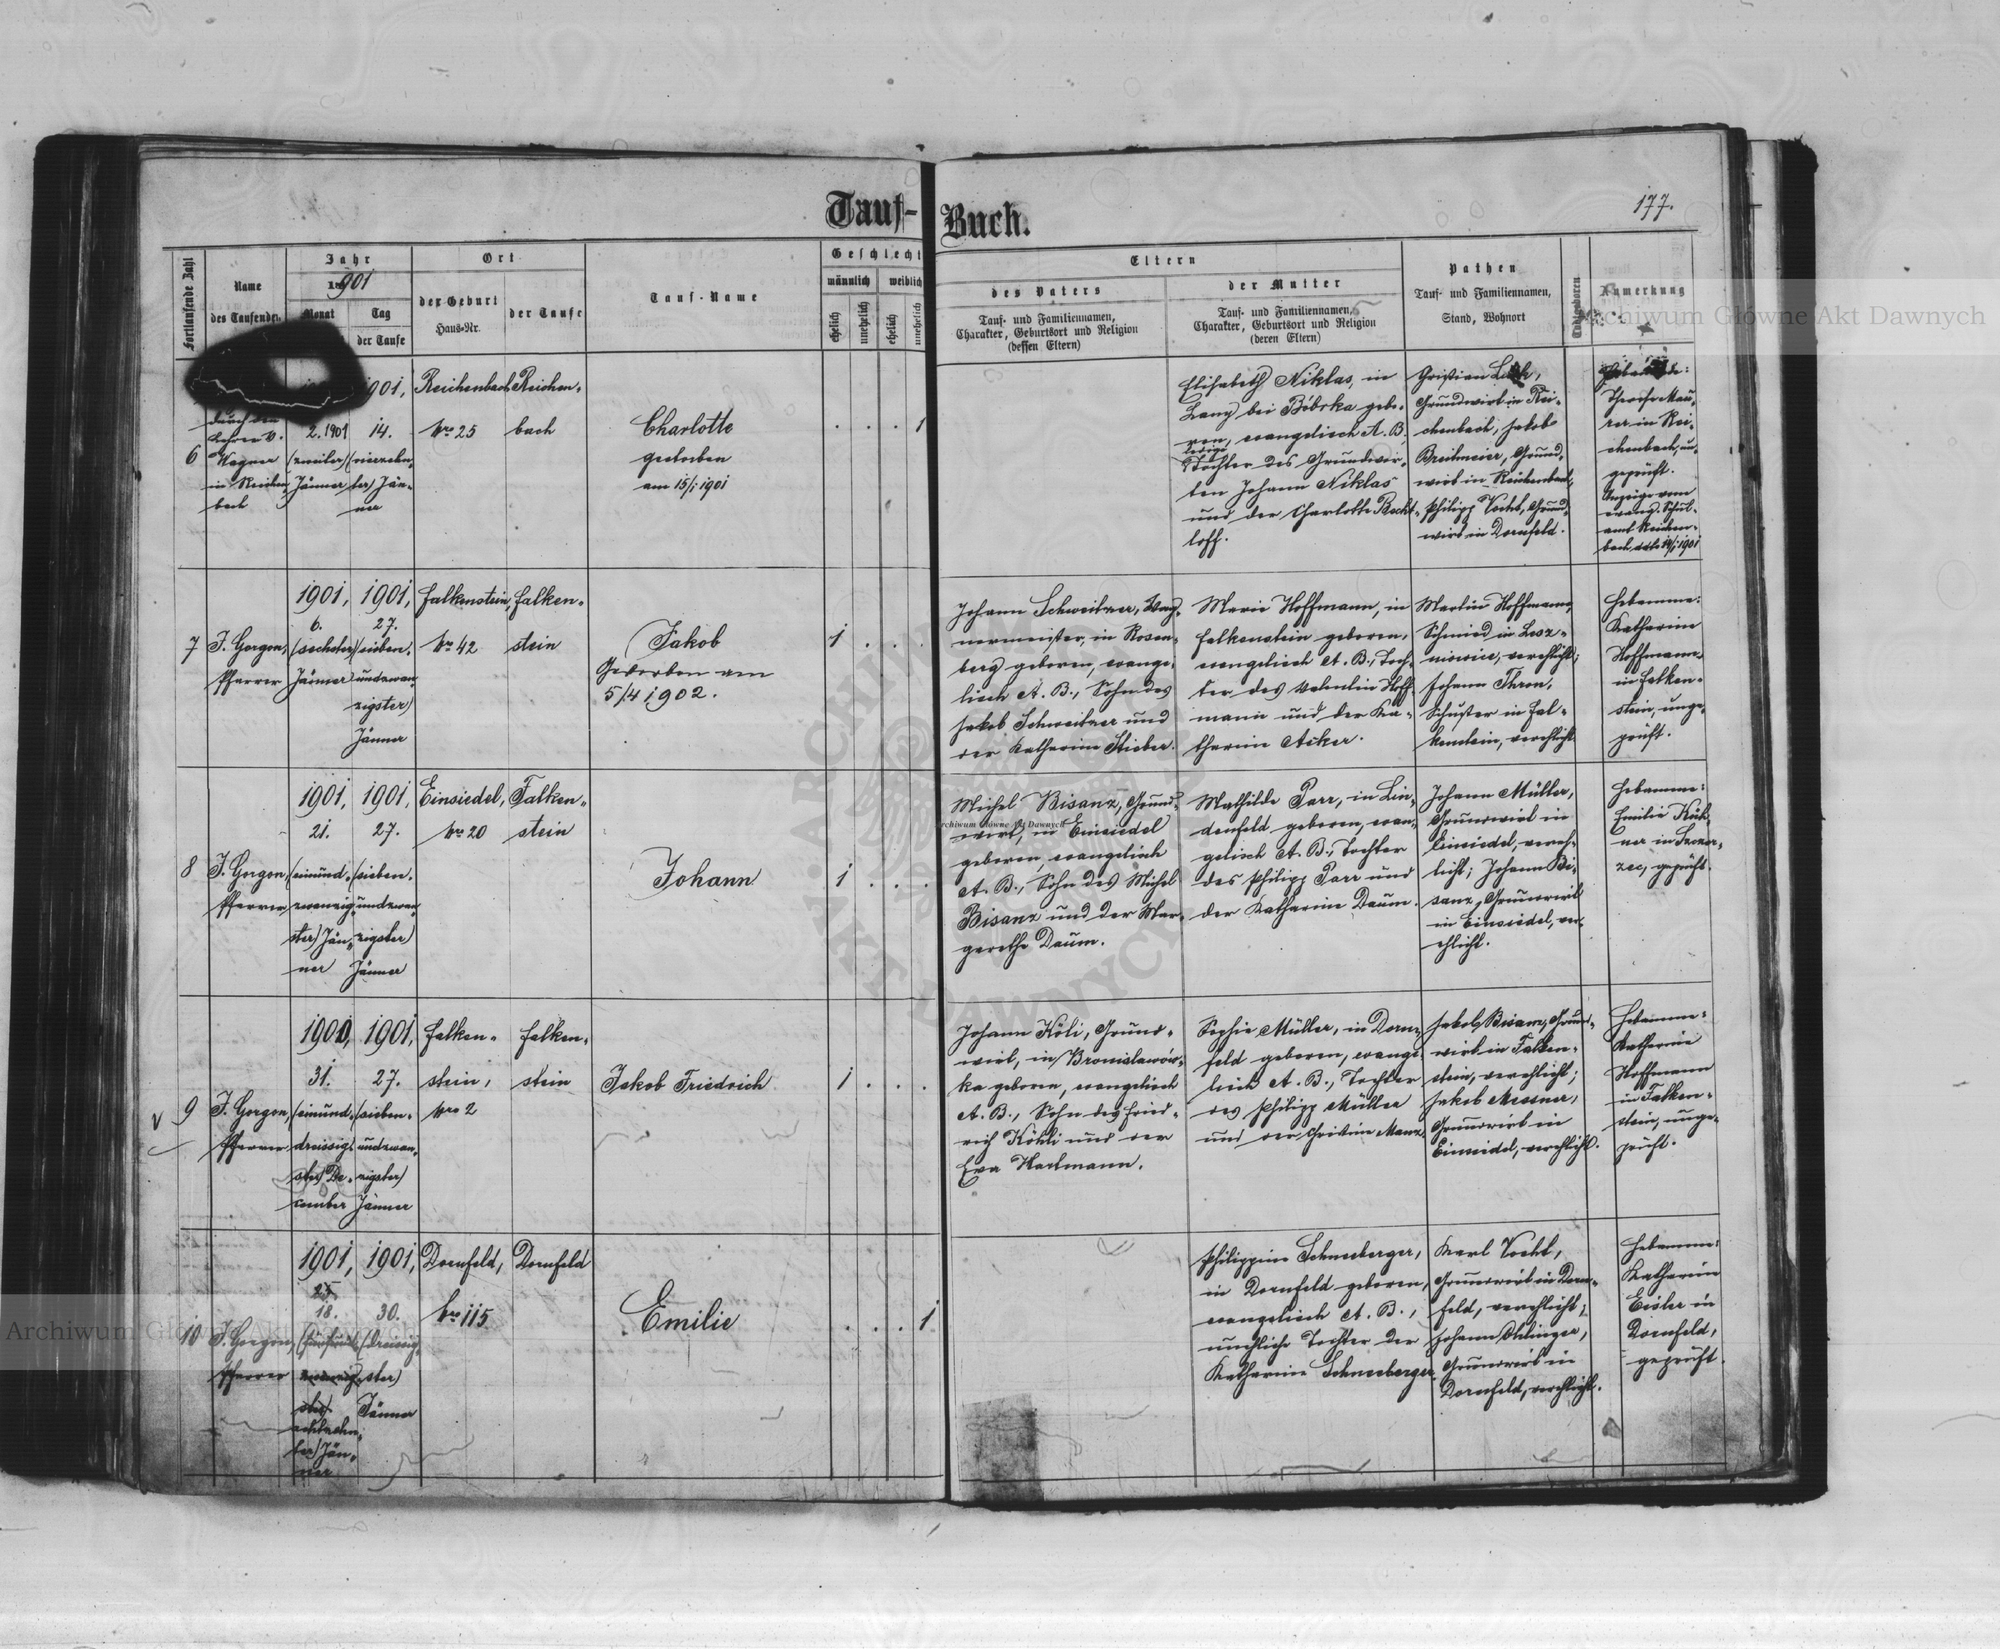 Tauf-Buch.
177.
Fortlaufende Zahl
Name
des Taufenden
Jahr
1901
Monat
Tag
der Taufe
Ort
der Geburt
Haus-Nr.
der Taufe
Tauf-Name
Geschlecht
männlich
weiblich
ehelich
unehelich
ehelich
unehelich
Eltern
des Vaters
Tauf- und Familiennamen,
Charakter, Geburtsort und Religion
(dessen Eltern)
der Mutter
Tauf- und Familiennamen,
Charakter, Geburtsort und Religion
(deren Eltern)
Pathen
Tauf- und Familiennamen,
Stand, Wohnort
Todtgeboren
Anmerkung
6
durch den
Lehrer
Wagner
in Reichen-
bach
2. 1901
(zweiter)
Jänner
1901,
14.
(vierzehn-
ter) Jän-
ner
Reichenbach
Nro 25
Reichen-
bach
Charlotte
gestorben
am 15/1 1901
1
Elisabeth Niklas, in
Lany bei Bóbrka gebo-
ren, evangelisch A. B.,
ledige
Tochter des Grundwir-
ten Johann Niklas
und der Charlotte Becht-
loff.
Christian
Grundwirt in Rei-
chenbach, Jakob
Breitmeier, Grund-
wirt in Reichenbach,
Philipp Vocht, Grund-
wirt in Dornfeld.
Therese Mau-
rer in Rei-
chenbach, un-
geprüft.
Anzeige vom
evang. Schul-
amt Reichen-
bach ddto 14/1 1901
7
J. Gorgon,
Pfarrer
1901,
6.
(sechster)
Jänner
1901,
27.
(sieben-
undzwan-
zigster)
Jänner
Falkenstein,
Nro 42
Falken-
stein
Jakob
Gestorben am
5/4 1902.
1
Johann Schweitzer, Wag-
nermeister, in Rosen-
berg geboren, evange-
lisch A. B., Sohn des
Jakob Schweitzer und
der Katharina Stieber.
Marie Hoffmann, in
Falkenstein geboren,
evangelisch A. B., Toch-
ter des Valentin Hoff-
mann und der Ka-
tharina Acker.
Martin Hoffmann,
Schmied in Lesz-
niowice, verehlicht;
Johann Thron,
Schuster in Fal-
kenstein, verehlicht.
Hebamme:
Katharina
Hoffmann
in Falken-
stein, unge-
prüft.
8
J. Gorgon,
Pfarrer
1901,
21.
(einund-
zwanzig-
ster) Jän-
ner
1901,
27.
(sieben-
undzwan-
zigster)
Jänner
Einsiedel,
Nro 20
Falken-
stein
Johann
1
Michel Bisanz, Grund-
wirt, in Einsiedel
geboren, evangelisch
A. B., Sohn des Michel
Bisanz und der Mar-
garethe Daum.
Mathilde Parr, in Lin-
denfeld geboren, evan-
gelisch A. B., Tochter
des Philipp Parr und
der Katharina Daum.
Johann Müller,
Grundwirt in
Einsiedel, vereh-
licht; Johann Bi-
sanz, Grundwirt
in Einsiedel, ver-
ehlicht.
Hebamme:
Emilie
geprüft.
9
J. Gorgon,
Pfarrer
1900,
31.
(einund-
dreissig-
ster) De-
cember
1901,
27.
(sieben-
undzwan-
zigster)
Jänner
Falken-
stein,
Nro 2
Falken-
stein
Jakob Friedrich
1
Johann Köli, Grund-
wirt, in Bronislawów-
ka geboren, evangelisch
A. B., Sohn des Fried-
rich Köhli und der
Eva Hartmann.
Sophie Müller, in Dorn-
feld geboren, evange-
lisch A. B., Tochter
des Philipp Müller
und der Christine Manz.
Jakob Bisanz, Grund-
wirt in Falken-
stein, verehlicht;
Jakob Messner,
Grundwirt in
Einsiedel, verehlicht.
Hebamme:
Katharina
Hoffmann
in Falken-
stein, unge-
prüft.
10
J. Gorgon,
Pfarrer
1901,
25.
18.
achtzehn-
ter) Jän-
ner
1901,
30.
(dreissig-
ster)
Jänner
Dornfeld,
Nro 115
Dornfeld
Emilie
1
Philippine Schneeberger,
in Dornfeld geboren,
evangelisch A. B.,
unehliche Tochter der
Katharina Schneeberger.
Karl Vocht,
Grundwirt in Dorn-
feld, verehlicht;
Johann Ohlinger,
Grundwirt in
Dornfeld, verehlicht.
Hebamme:
Katharina
Eisler in
Dornfeld,
geprüft.
Archiwum Główne Akt Dawnych
Archiwum Główne Akt Dawnych
Archiwum Główne Akt Dawnych